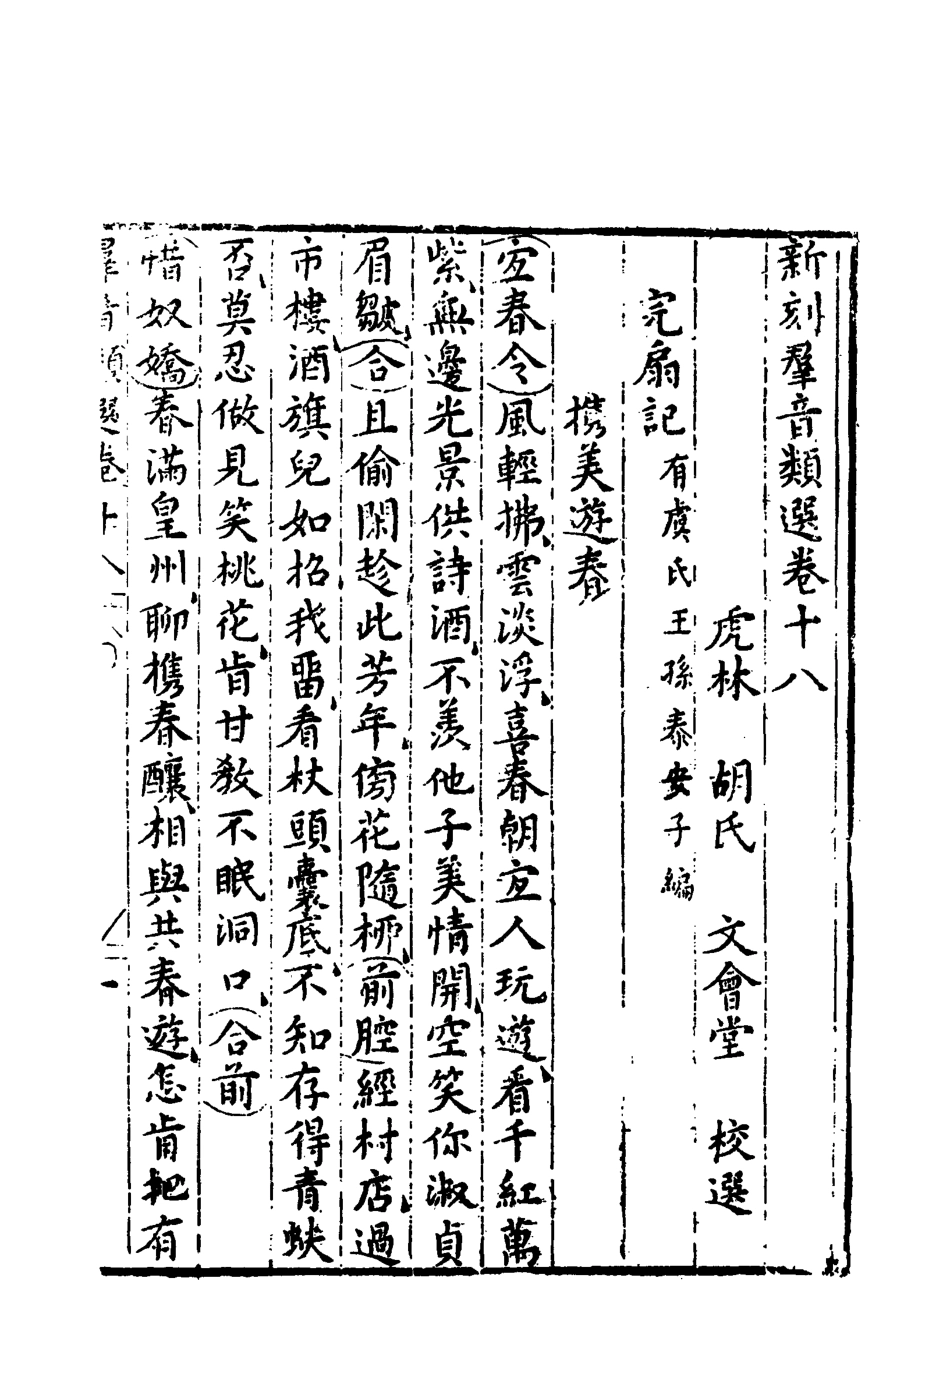 新刻羣音類選卷十八
虎林 胡氏 文會堂 校選
完扇記有虞氏王孫泰安子編
携美遊春
宜春令風輕拂雲淡浮喜春朝宜人玩遊看千紅萬
紫無邊光景供詩酒不羨他子美情開空笑你淑貞
眉皺合且偷閑趁此芳年傍花隨柳前腔經村店過
市樓酒旗兒如招我畱看杖頭囊底不知存得青蚨
否莫忍做見笑桃花肯甘教不眠洞口合前
惜奴嬌春滿皇州聊携春釀相與共春遊怎肯把有
羣音類選卷十八